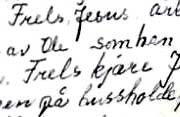 Frels, Jesus arb
av Ole som han
Frels kjære J
en på husshold